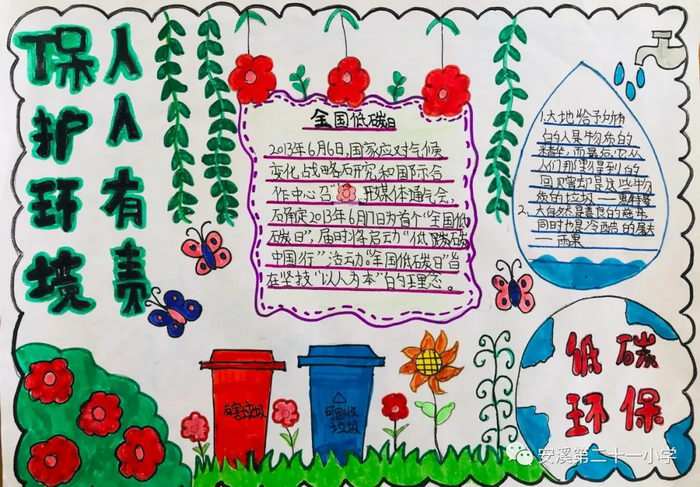 保护环境
人人有责
全国低碳日
2013年6月6日,国家应对气候
变化战略研究和国际合
作中心召 开媒体通气会,
确定2013年6月17日为首个“全国低
碳日”,届时将启动“低碳
中国行”活动。“全国低碳日”旨
在坚持“以人为本”的理念。
1.大地给予所有
的人是物质的
精华,而最后,它从
人们那里得到的
回赠却是这些物
质的垃圾——惠特曼
2.大自然是善良的慈母,
同时也是冷酷的屠夫
——雨果
有害垃圾
可回收
垃圾
低碳
环保
安溪第二十一小学